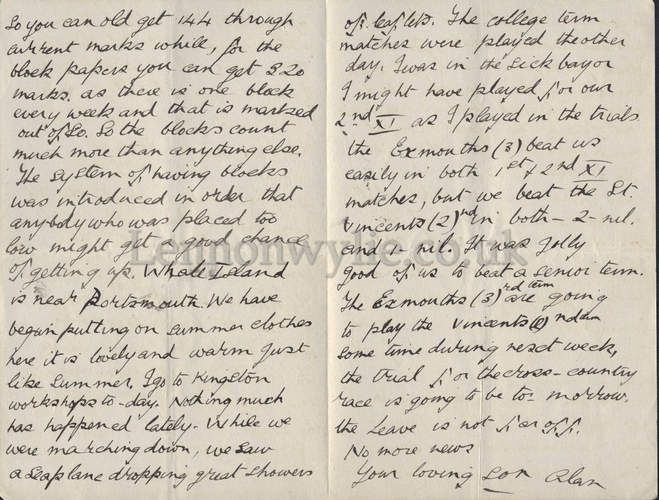 So you can old get 144 through
current marks while, for the
block papers you can get 320
marks. as there is one block
every week and that is marked
out of 80. So the blocks count
much more than anything else.
The system of having blocks
was introduced in order that
anybody who was placed too
low might get a good chance
of getting up. Whale Island
is near Portsmouth. We have
begun putting on summer clothes
here it is lovely and warm just
like summer. I go to Kingston
workshops to-day. Nothing much
has happened lately. While we
were marching down, we saw
a seaplane dropping great showers
of leaflets. The college term
matches were played the other
day. I was in the sick bay or
I might have played for our
2nd XI as I played in the trials
the Exmouths (3) beat us
easily in both 1st & 2nd XI
matches, but we beat the St.
Vincents (2)nd in both - 2 - nil.
and 1 - nil. It was jolly
good of us to beat a senior term.
The Exmouths (3)rd term are going
to play the Vincents (2)nd term
some time during next week,
the trial for the cross-country
race is going to be to-morrow.
the leave is not far off.
No more news
Your loving son Alan
Lennonwylie.co.uk